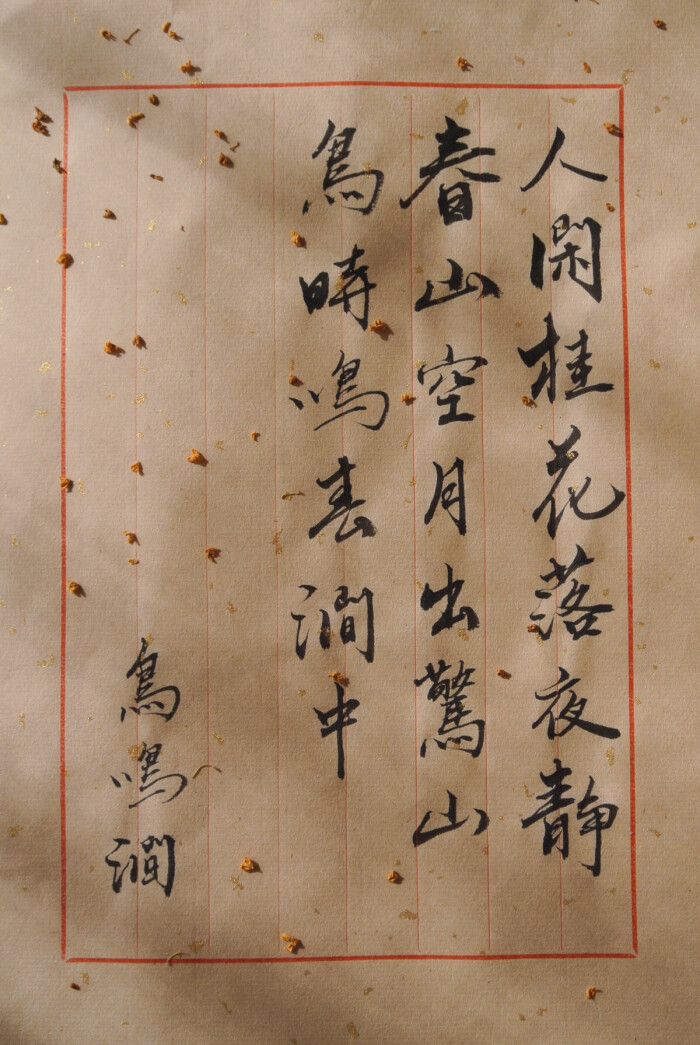 人閑桂花落夜靜
春山空月出驚山
鳥時鳴春澗中
鳥鳴澗